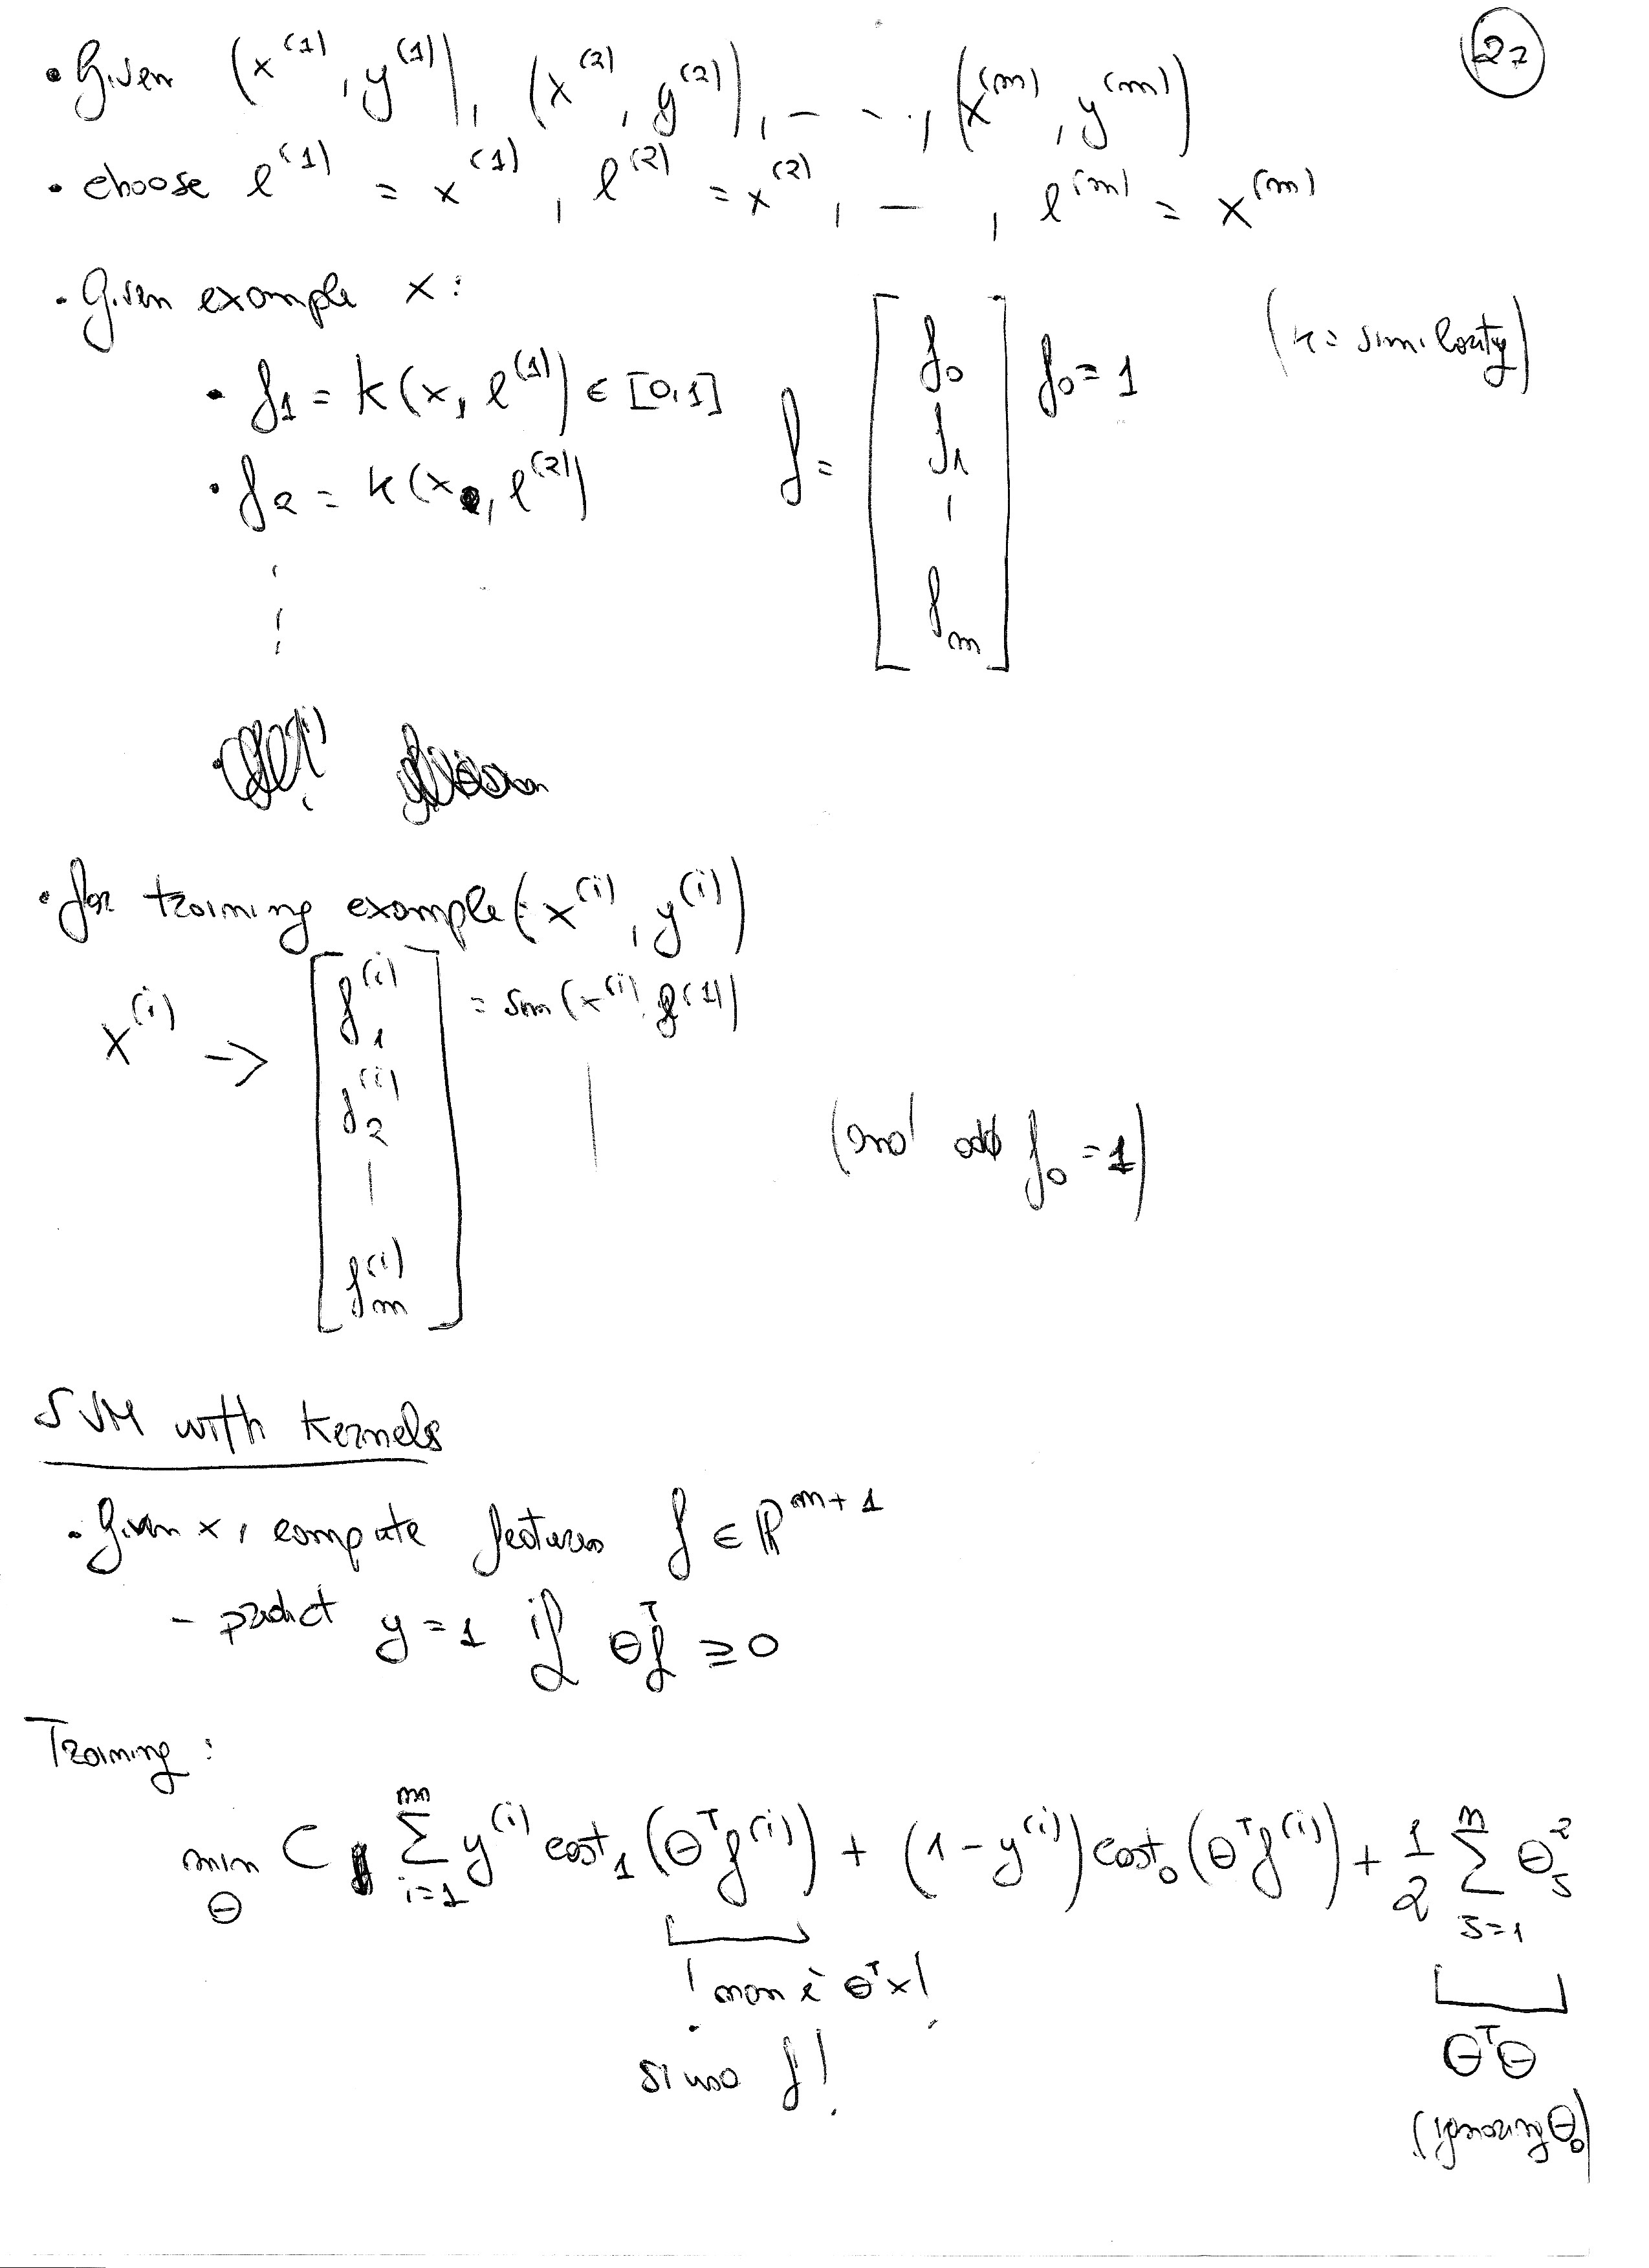 27
• Given (x^(1), y^(1)), (x^(2), y^(2)), - - -, (x^(m), y^(m))
• choose l^(1) = x^(1), l^(2) = x^(2), —, l^(m) = x^(m)
• Given example x:
• f1 = k(x, l^(1)) ∈ [0,1]
• f2 = k(x, l^(2))
f = [ f0 f1 | fm ] f0 = 1
(k = similarity)
• for training example (x^(i), y^(i))
x^(i) → [ f1^(i) f2^(i) | fm^(i) ] = sim(x^(i), l^(1))
(and add f0 = 1)
SVM with kernels
• Given x, compute features f ∈ ℝ^m+1
- predict y = 1 if θ^T f ≥ 0
Training:
min θ C Σ i=1 m y^(i) cost1(θ^T f^(i)) + (1 - y^(i)) cost0(θ^T f^(i)) + 1/2 Σ j=1 n θj^2
! non è θ^T x!
si usa f!
θ^T θ
(ignoring θ0)